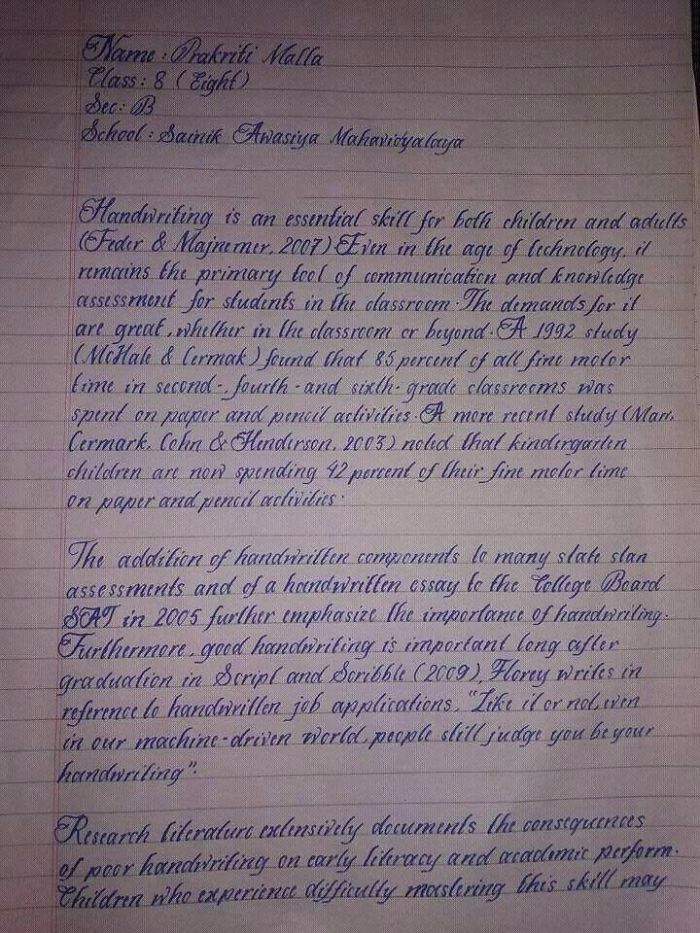 Name : Prakriti Malla
Class : 8 (Eight)
Sec : B
School : Sainik Awasiya Mahavidyalaya
Handwriting is an essential skill for both children and adults
(Feder & Majnemer, 2007) Even in the age of technology, it
remains the primary tool of communication and knowledge
assessment for students in the classroom. The demands for it
are great, whether in the classroom or beyond. A 1992 study
(McHale & Cermak) found that 85 percent of all fine motor
time in second-, fourth-and sixth-grade classrooms was
spent on paper and pencil activities. A more recent study (Marr,
Cermark, Cohn & Henderson, 2003) noted that kindergarten
children are now spending 42 percent of their fine motor time
on paper and pencil activities.
The addition of handwritten components to many state stan
assessments and of a handwritten essay to the College Board
SAT in 2005 further emphasize the importance of handwriting.
Furthermore, good handwriting is important long after
graduation in Script and Scribble (2009), Florey writes in
reference to handwritten job applications, "Like it or not, even
in our machine-driven world, people still judge you be your
handwriting".
Research literature extensively documents the consequences
of poor handwriting on early literacy and academic perform.
Children who experience difficulty mastering this skill may